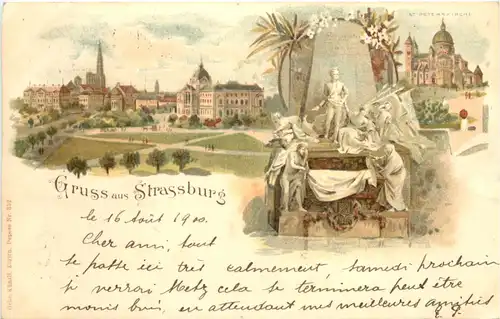 ST PETERSKIRCHE
Gruss aus Strassburg
le 16 Août 1900.
Cher ami, tout
se passe ici très calmement, Samedi prochain
je verrai Metz cela se terminera peut être
moins bien, en attendant mes meilleures amitiés